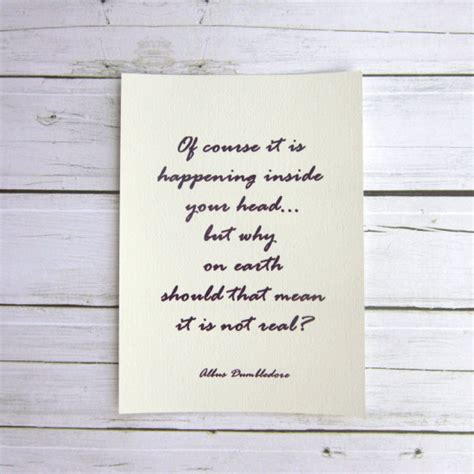 Of course it is
happening inside
your head...
but why
on earth
should that mean
it is not real?
Albus Dumbledore